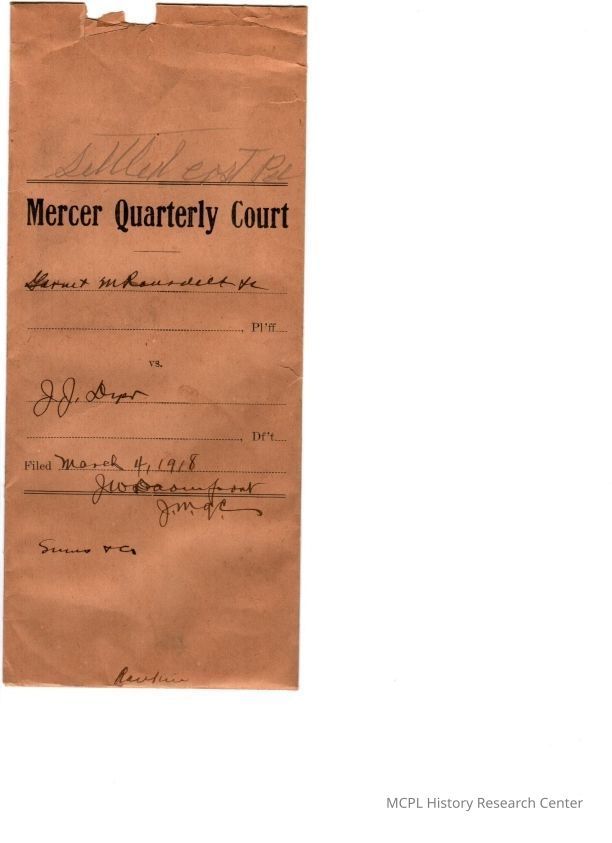 Settled cost Pd
Mercer Quarterly Court
Garnet M Ransdell &c
, Pl'ff
vs.
J.J. Dyer
, Df't
Filed March 4, 1918
J.M.Q.C.
Sums &c
Rankin
MCPL History Research Center